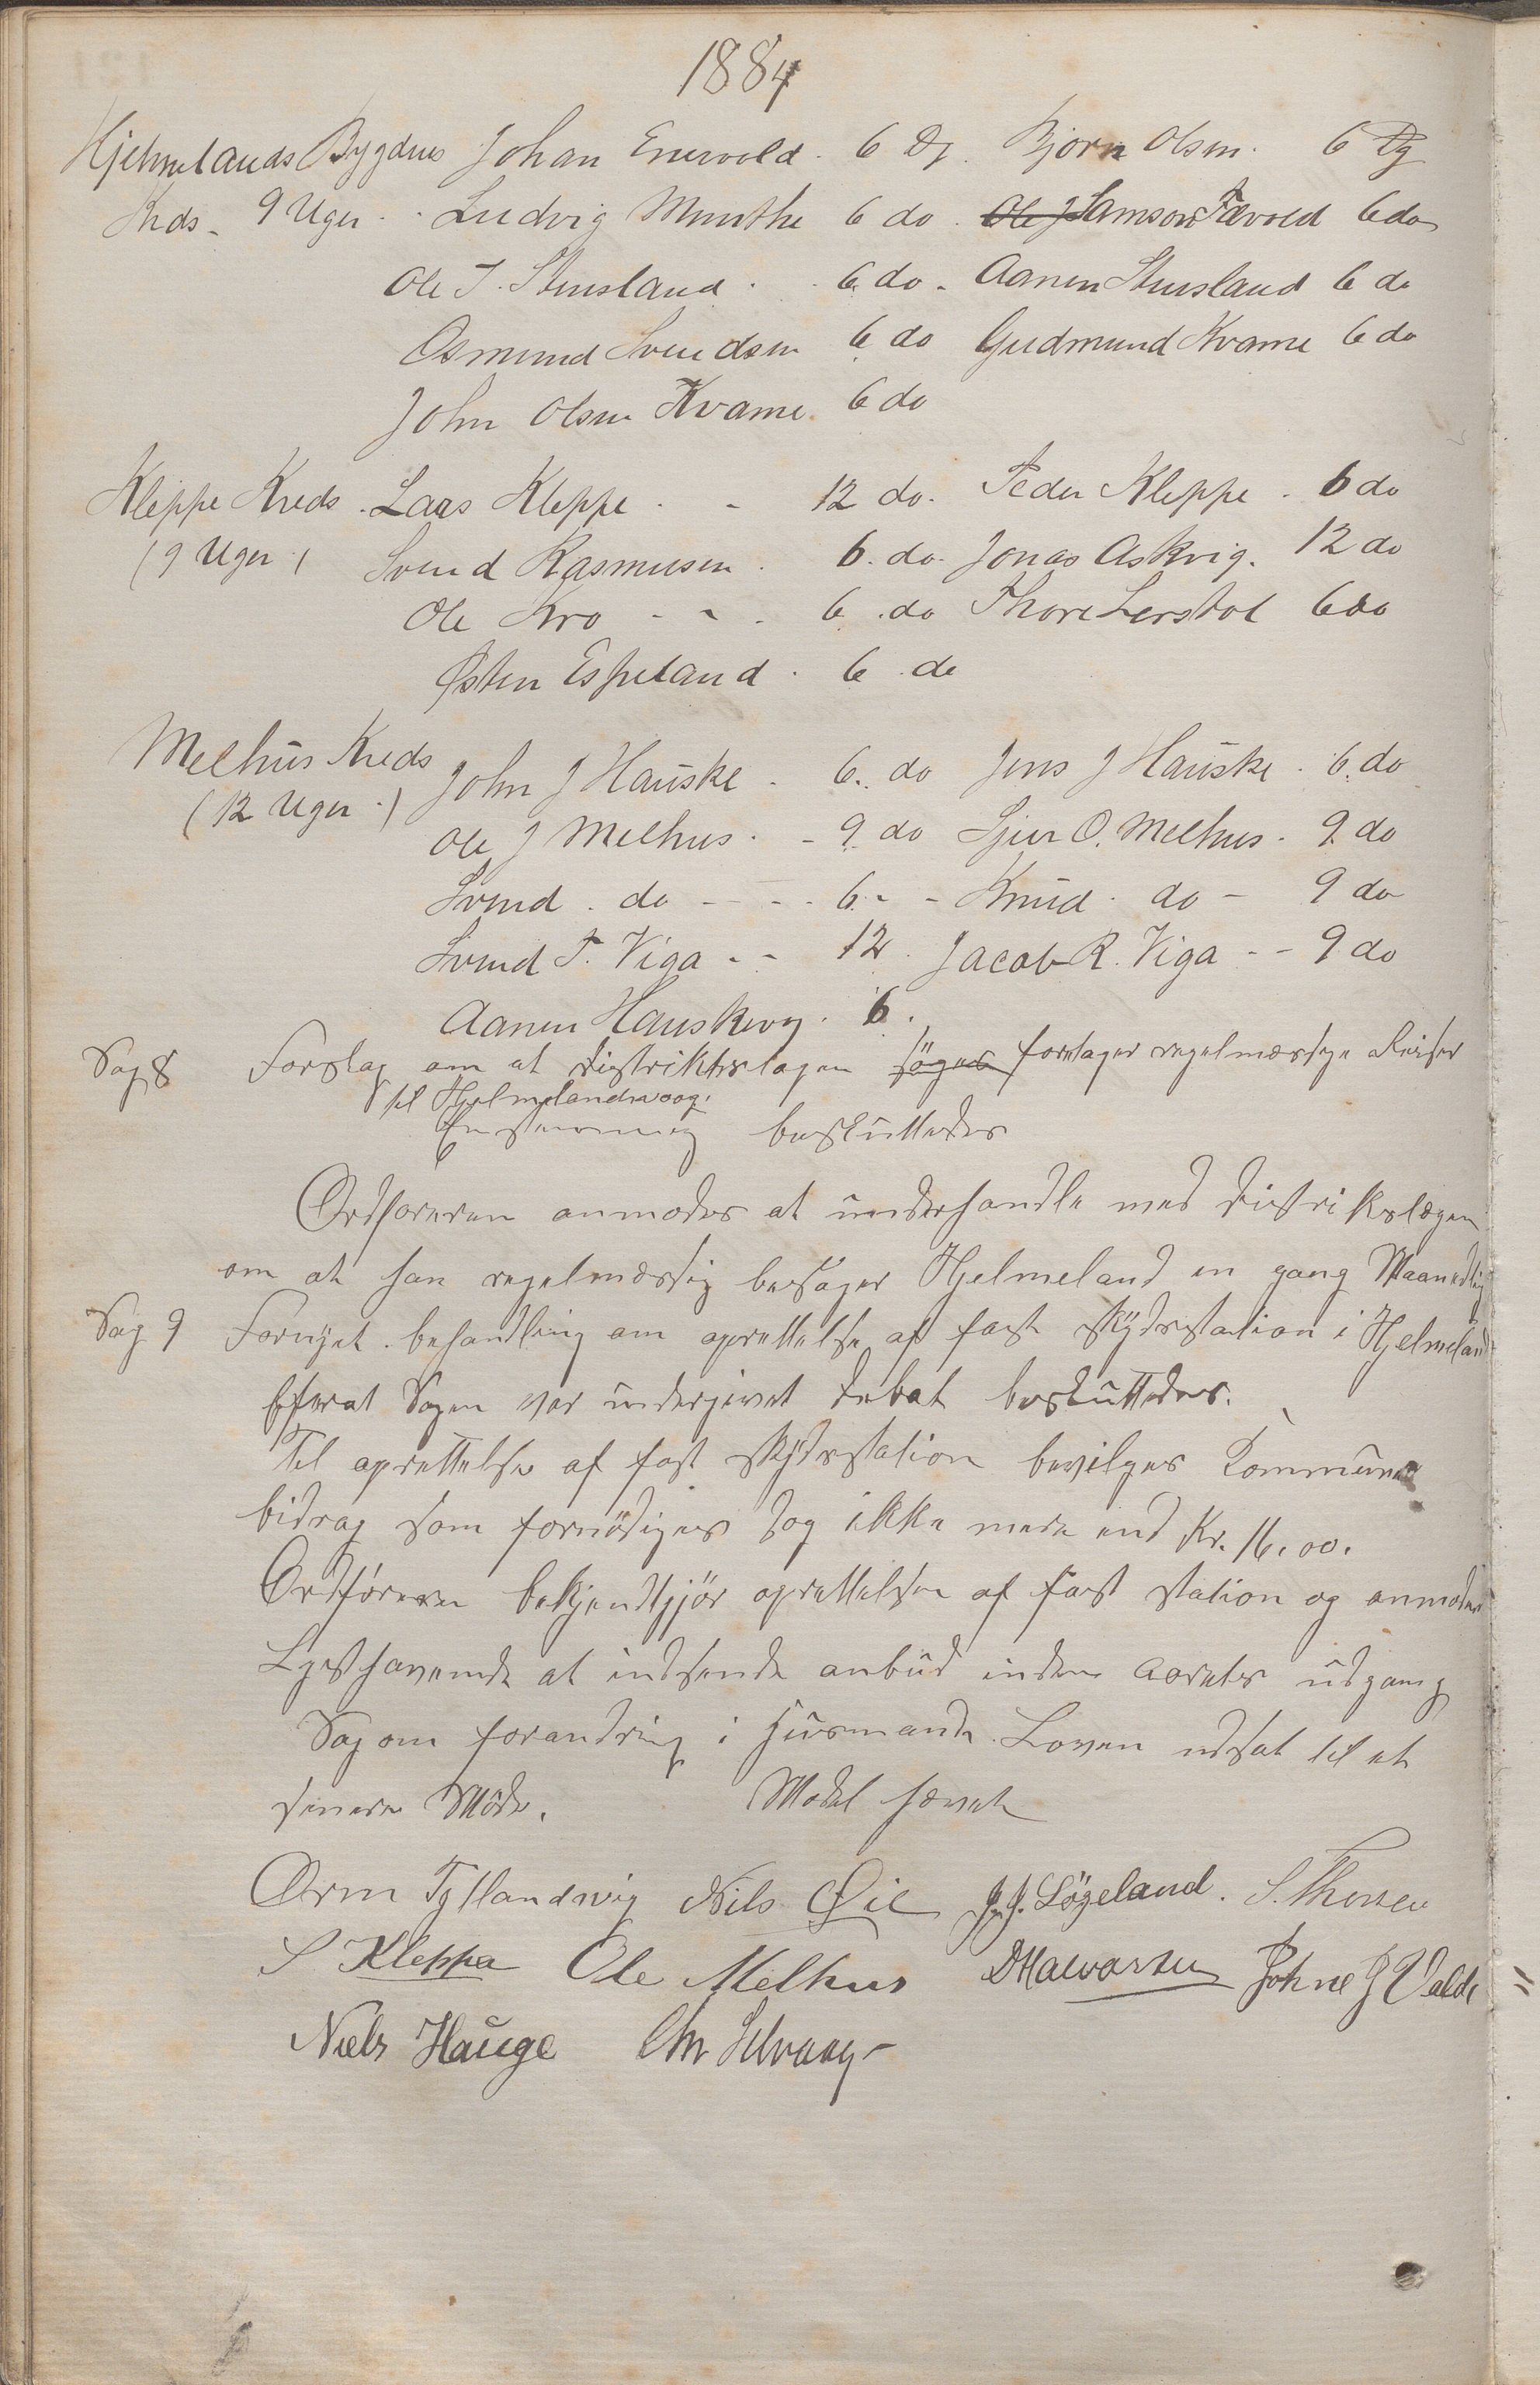 1884
Hjelmelands Bygdens Johan Enevold. 6 Dg. Bjørn Olsen. 6 Dg
Kreds - 9 Uger. - Ludvig Munthe 6 do. Ole J Samson Tævold 6 do
Ole T. Stensland. 6 do - Aanen Stensland 6 do
Osmund Svendsen 6 do Gudmund Kvame 6 do
John Olsen Kvame. 6 do
Kleppe Kreds. Lars Kleppe. - 12 do. Peder Kleppe. 6 do
(9 Uger.) Svend Rasmusen. 6. do. Jonas Askvig. 12 do
Ole Kro - - . 6. do Thore Lerstøl 6 do
Østen Espeland. 6. do
Melhus Kreds John J Hauske - 6. do Jens J Hauske. 6. do
(12 Uger.)
Ole J Melhus. - 9. do Sjur O. Melhus. 9. do
Svend. do - - - 6 - - Knud. do - 9 do
Svend T. Viga - - 12. Jacob R. Viga - - 9 do
Aanen Hauskevg. 6.
Sag 8 Forslag om at Distriktslægen søges foretager regelmæssige Reiser
til Hjelmelandsvaag.
Enstemmig besluttedes
Ordføreren anmodes at underhandle med Distrikslægen
om at han regelmæssig besøger Hjelmeland en gang Maanedlig
Sag 9 Fornyet behandling om oprettelse af fast skydsstation i Hjelmeland
Efterat Sagen var undergivet debat besluttedes.
Til oprettelse af fast skydsstation bevilges Kommune
bidrag som fornødiges dog ikke mere end Kr. 16.00.
Ordføreren bekjendtgjør oprettelsen af fast station og anmoder
Lysthavende at indsende anbud inden aarets udgang
Sag om forandring i Husmands Loven udsat til et
senere Møde. Mødet hævet
Orm Tyslandvig Nils Øie J. J. Løgeland. S. Thorsen
S Kleppa Ole Melhus D Halvorsen Johne J Valde
Niels Hauge Chr Selvaag